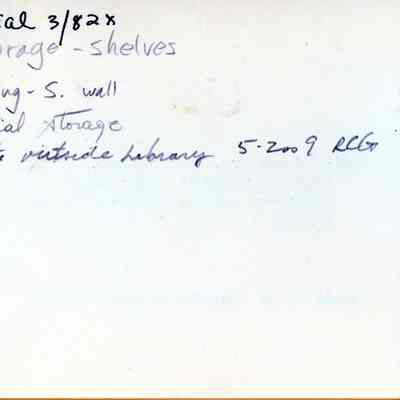 ial 3/82x
orage - shelves
ng - S. wall
ial storage
outside Library 5-2009 RCG